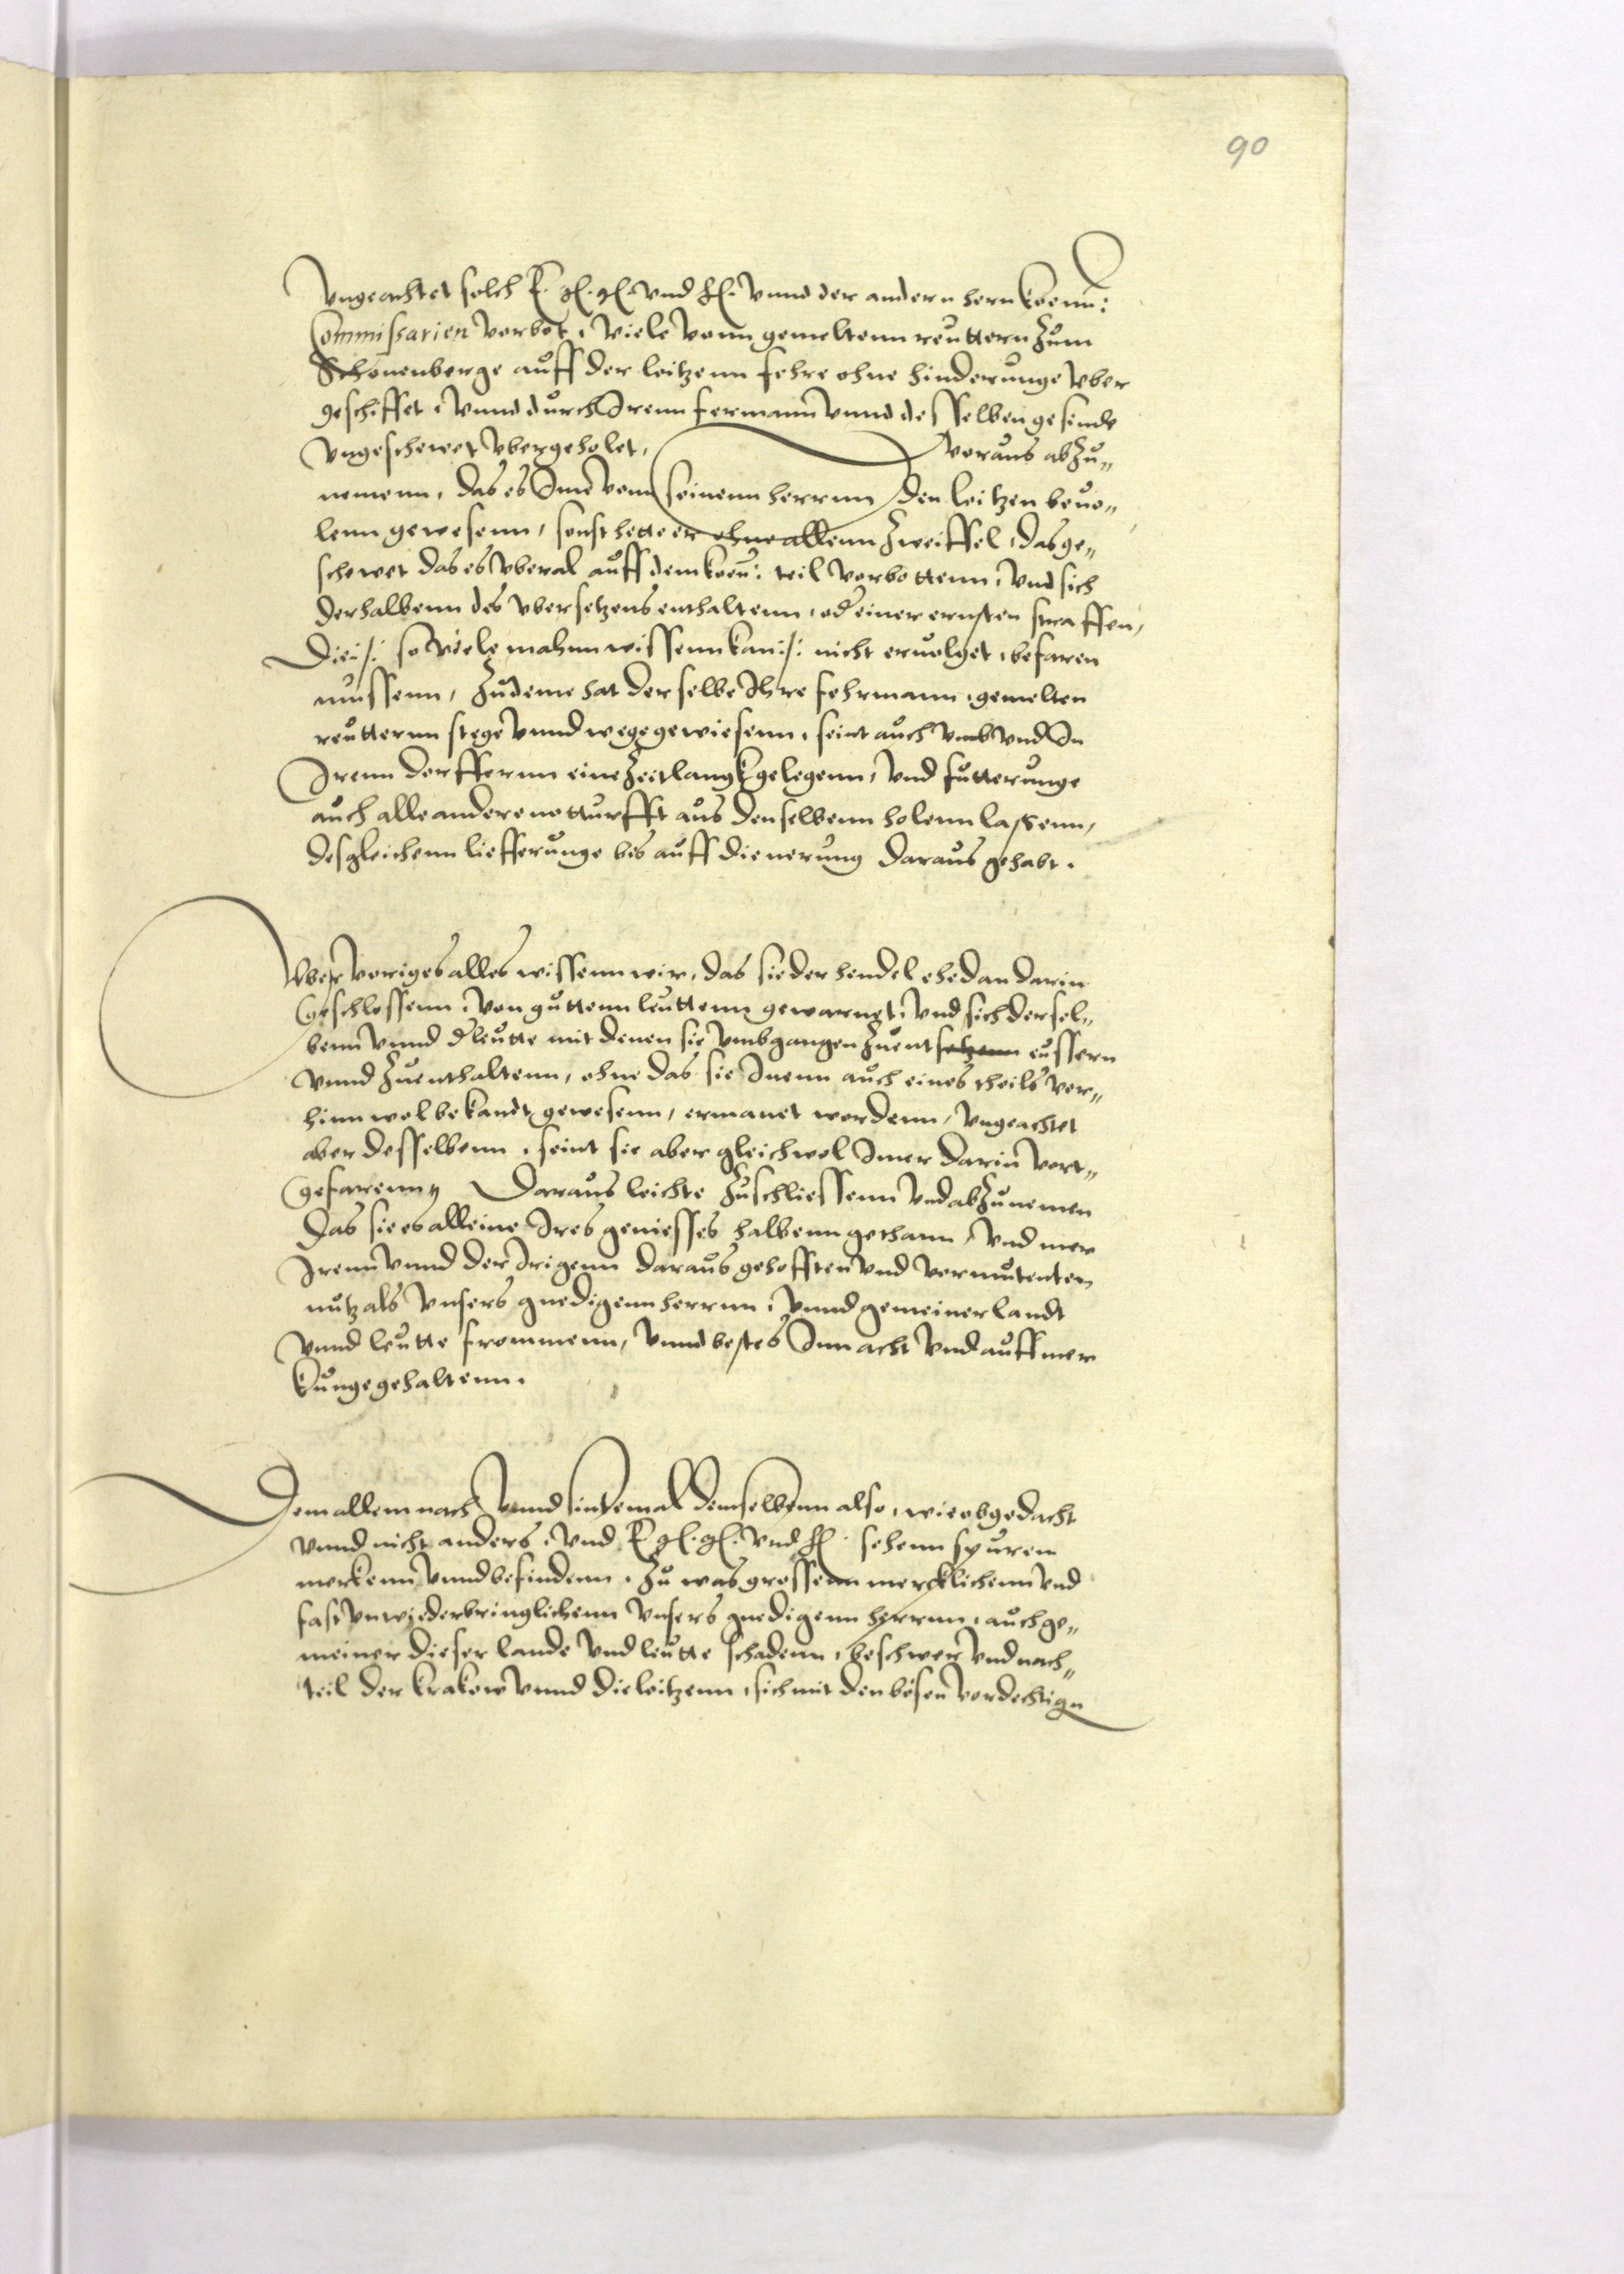 90
Vngeachtet solch E. gl. gl. vnd hl. vnnd der andern hern koenn:
Commissarien verbot, viele vonn gemeltenn reuttern zum
Schonenberge auff der leitzenn fehre ohne hinderunge vber
geschiffet, vnnd durch Irenn fermann vnnd desselben gesinde
vngeschewet vbergeholet, woraus abzu„
nemenn, das es Ime vonn seinenn herrnn den leitzen beuo„
lenn gewesenn, sonst hette er ohne allenn zweiffel, das ge„
schewet das es vberal auff dem koen: teil verbottenn, vnd sich
derhalbenn des vbersetzens enthaltenn, od einer ernsten straffen,
Die /: so viele mahnn wissenn kan :/ nicht eruolget, befaren
mussenn, Zudeme hat derselbe Ihre fehrmann, gemelten
reutternn stege vnnd wege gewiesenn, seint auch vmb vnd In
Irenn dorffernn eine Zeitlangk gelegenn, vnd futterunge
auch alle andere notturfft aus denselbenn holenn lassenn,
desgleichenn liefferunge bis auff die nerung daraus gehabt.
Vber voriges alles wissenn wir, das sie der hendel ehe dan darin
geschlossenn, von guttenn leuttenn gewarnet, vnd sich dersel„
benn vnnd d leutte mit denen sie vmbgangen zuentsetzenn eussern
vnnd zuenthaltenn, ohne das sie Inenn auch eines theils vor„
hinn wol bekandt gewesenn, ermanet wordenn, vngeachtet
aber desselbenn, seint sie aber gleichwol Imer darin vort„
gefarenn, Daraus leichte zuschliessenn vnd abzunemen
Das sie es alleine Ires geniesses halbenn gethann, vnd mer
Irenn vnnd der Irigenn daraus gehofften vnd vermutenten
nutz als vnsers gnedigenn herrnn, vnnd gemeiner landt
vnnd leutte frommenn, vnnd bestes Inn acht vnd auffmer
kunge gehaltenn.
Dem allem nach vnnd sintemal demselbenn also, wie obgedacht
vnnd nicht anders, vnd E gl. gl. vnd hl. sehenn spuren
merkenn vnnd befindenn, zu was grossenn mercklichenn vnd
fast vnwiederbringlichenn vnsers gnedigenn herrnn, auch ge„
meiner dieser lande vnd leutte schadenn, beschwer vnd nach„
teil der krakow vnnd die leitzenn, sich mit den bösen verdechtign